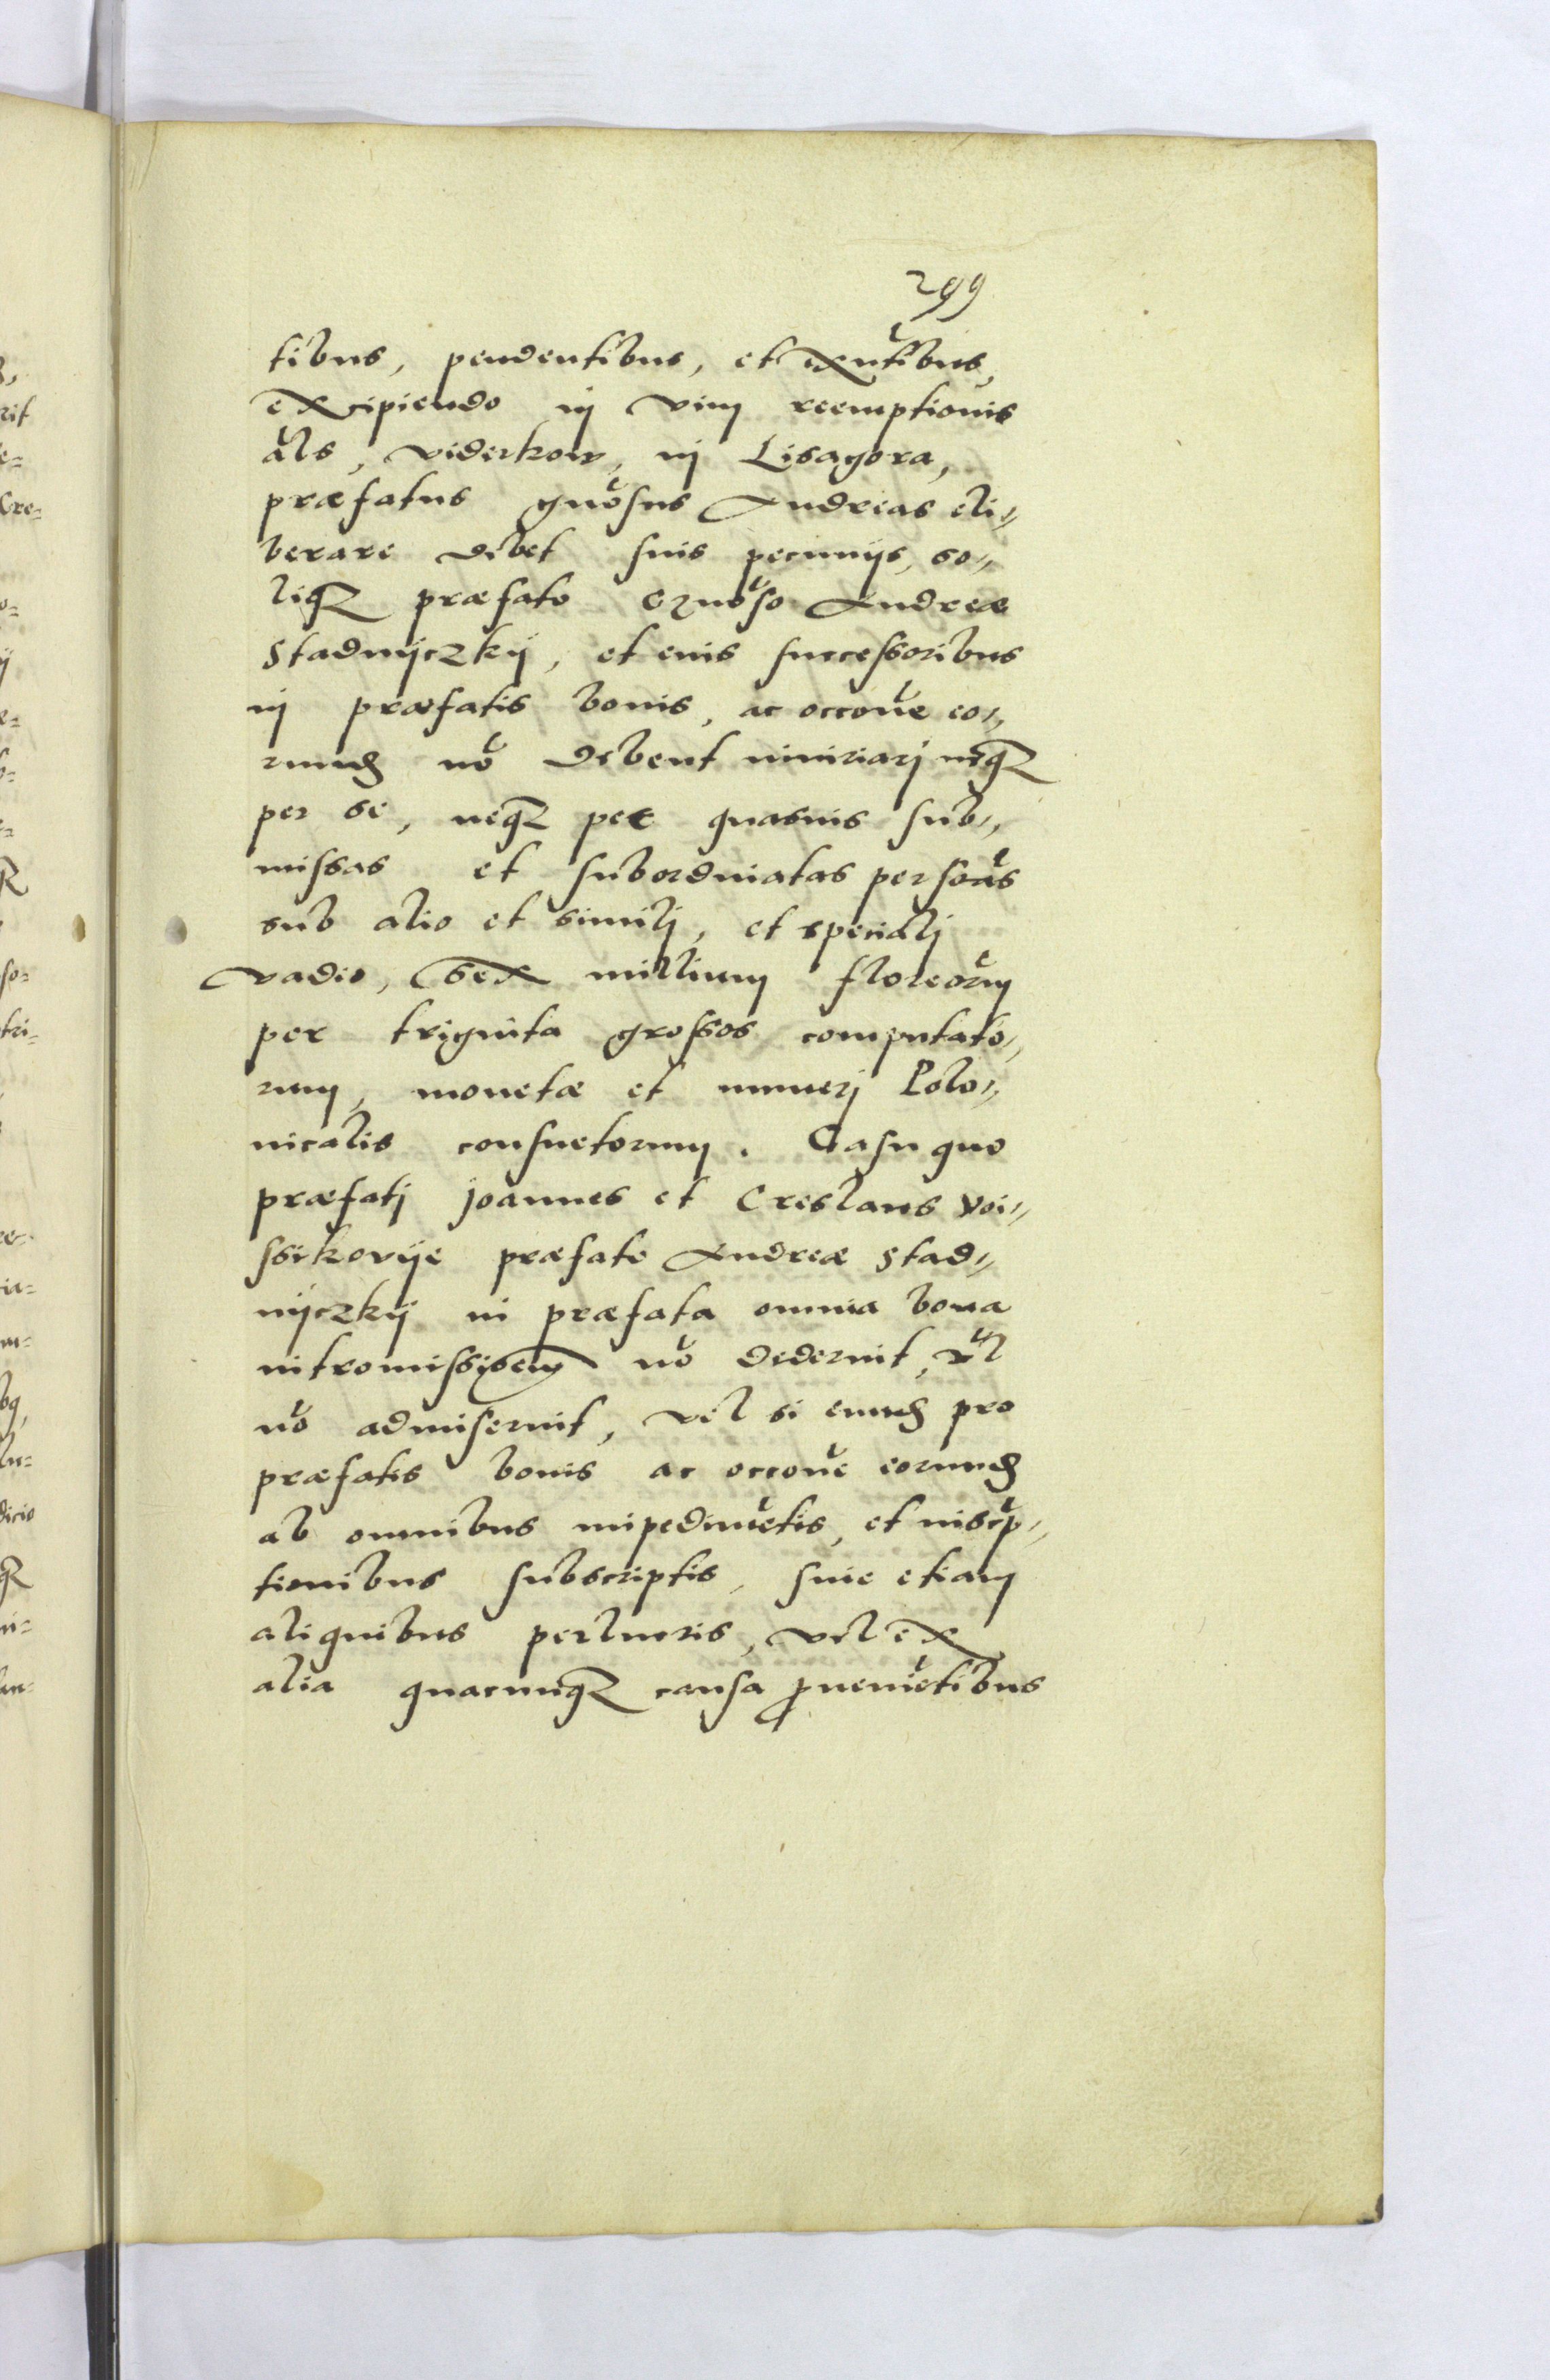 299
tibus, pendentibus, et exñtibus,
excipiendo in vim reemptionis
als, viderkow, in Lisagora,
præfatus gnosus Andreas eli-
berare debet suis pecunijs, so-
liqꝫ præfato Gnoso Andreæ
Stadnÿczkÿ, et euis successoribus
in præfatis bonis, ac occone eo-
rund no debent iniuriarj neqꝫ
per se, neqꝫ per quasuis sub-
missas et subordinatas persoas
sub alio et similj, et specialj
vadio, sex millium floreorum
per triginta grossos computato-
rum, monetæ et numerj Polo-
nicalis consuetorum. Casu quo
præfatj joannes et Creslaus Voi-
ssikovÿe præfato Andreæ Stad-
nÿczkÿ in præfata omnia bona
intromissisem no dederint, vl
no admiserint, vel si eund pro
præfatis bonis ac occone eorund
ab omnibus impedimetis, et inscrip-
tionibus subscriptis, siue etiam
aliquibus perlucris, vel ex
alia quacunqꝫ causa ꝓuenietibus